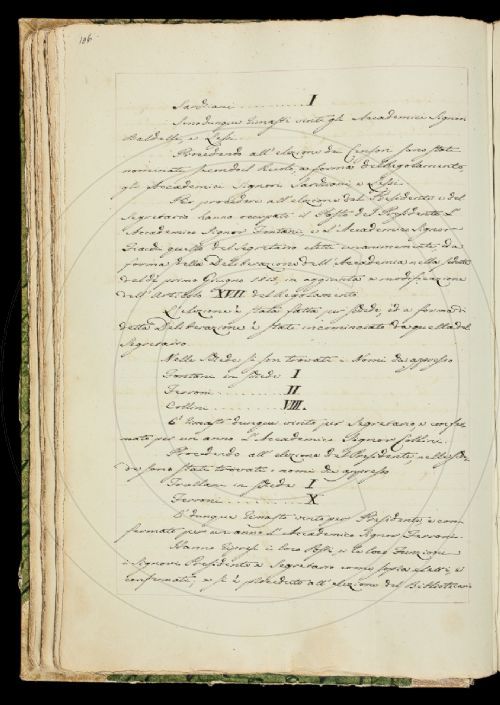 186.
Sardiani . . . . . . . . . . I
Sono dunque rimasti vinti gli Accademici Signori
Baldelli, e Lessi.
Procedendo all'elezione de' Censori sono stati
nominati secondo il Ruolo, a forma del Regolamento
gli Accademici Signori Sardiani e Lessi.
Per procedere all'elezione del Presidente, e del
Segretario hanno occupati il Posto del Presidente l'
Accademico Signor Fontani, e l'Accademico Signor
quello del Segretario eletti unanimemente, ed a
forma della Deliberazione dell'Accademia nella seduta
del dì primo Giugno in aggiunta e modificazione
dell'Articolo XVII. del Regolamento.
L'elezione è stata fatta per schede, ed a forma di
detta Deliberazione è stata incominciata da quella del
Segretario.
Nelle Schede si son trovati i Nomi da appresso
Fontani in schede I
Ferroni . . . . . . . . II
Collini . . . . . . . . VIII.
È rimasto dunque vinto per Segretario, e confer-
mato per un anno l'Accademico Signor Collini.
Procedendo all'elezione del Presidente, nelle sche-
de sono stati trovati i nomi da appresso
in schede I
Ferroni . . . . . . . . . . X
È dunque rimasto vinto per Presidente, e con-
fermato per un anno l'Accademico Signor Ferroni.
Hanno ripresi i loro Posti, e le loro Funzioni
i Signori Presidente e Segretario come sopra eletti, e
confermati, e si è proceduto all'elezione del Bibliotecario